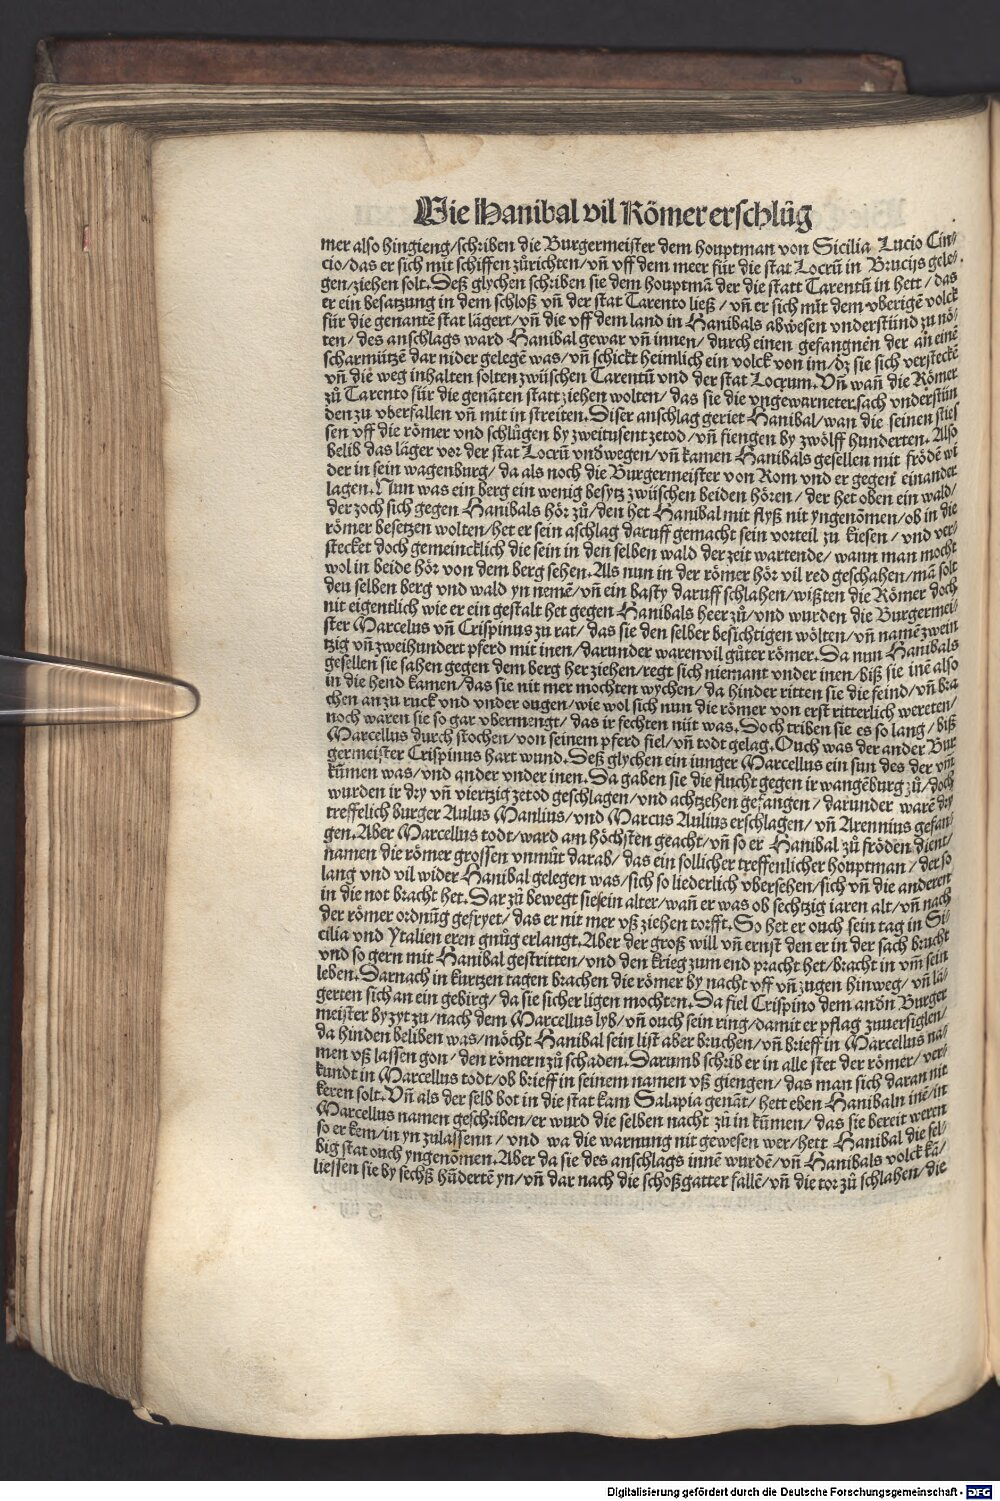 Wie Hanibal vil Römer erschlůg
mer also hingieng/schriben die Burgermeister dem houptman von Sicilia Lucio Cin⸗
cio/das er sich mit schiffen zůrichten/vn̄ vff dem meer für die stat Locrū in Brucijs gele⸗
gen/ziehen solt. Deß glychen schriben sie dem houptmā der die statt Tarentū in hett/das
er ein besatzung in dem schloß vn̄ der stat Tarento ließ/vn̄ er sich mit dem vberigē volck
für die genantē stat lägert/vn̄ die vff dem land in Hanibals abwesen vnderstünd zu nö⸗
ten/des anschlags ward Hanibal gewar vn̄ innen/durch einen gefangnen der an einē
scharmützē dar nider gelegē was/vn̄ schickt heimlich ein volck von im/dz sie sich versteckē
vn̄ die weg inhalten solten zwüschen Tarentū vnd der stat Locrum. Vn̄ wan̄ die Römer
zů Tarento für die genāten statt ziehen wolten/das sie die vngewarneter sach vnderstün
den zu vberfallen vn̄ mit in streiten. Diser anschlag geriet Hanibal/wan die seinen sties
sen vff die römer vnd schlůgen by zweitusent zetod/vn̄ fiengen by zwölff hunderten. Also
belib das läger vor der stat Locrū vndwegen/vn̄ kamen Hanibals gesellen mit frödē wi
der in sein wagenburg/da als noch die Burgermeister von Rom vnd er gegen einander
lagen. Nun was ein berg ein wenig besytz zwüschen beiden hören/der het oben ein wald/
der zoch sich gegen Hanibals hör zů/den het Hanibal mit flyß nit yngenōmen/ob in die
römer besetzen wolten/het er sein aschlag daruff gemacht sein vorteil zu kiesen/vnd ver⸗
stecket doch gemeincklich die sein in den selben wald der zeit wartende/wann man mocht
wol in beide hör von dem berg sehen. Als nun in der römer hör vil red geschahen/mā solt
den selben berg vnd wald yn nemē/vn̄ ein basty daruff schlahen/wißten die Römer doch
nit eigentlich wie er ein gestalt het gegen Hanibals heer zů/vnd wurden die Burgermei⸗
ster Marcelus vn̄ Crispinus zu rat/das sie den selber besichtigen wölten/vn̄ namē zwein
tzig vn̄ zweihundert pferd mit inen/darunder waren vil gůter römer. Da nun Hanibals
gesellen sie sahen gegen dem berg her ziehen/regt sich niemant vnder inen/biß sie inē also
in die hend kamen/das sie nit mer mochten wychen/da hinder ritten sie die feind/vn̄ bra
chen an zu ruck vnd vnder ougen/wie wol sich nun die römer von erst ritterlich wereten/
noch waren sie so gar vbermengt/das ir fechten nüt was. Doch triben sie es so lang/biß
Marcellus durch stochen/von seinem pferd fiel/vn̄ todt gelag. Ouch was der ander Bur
germeister Crispinus hart wund. Deß glychen ein iunger Marcellus ein sun des der vm̄
kūmen was/vnd ander vnder inen. Da gaben sie die flucht gegen ir wangēburg zů/doch
wurden ir dry vn̄ viertzig zetod geschlagen/vnd achtzehen gefangen/darunder warē dry
treffelich burger Aulus Manlius/vnd Marcus Aulius erschlagen/vn̄ Arennius gefan⸗
gen. Aber Marcellus todt/ward am höchsten geacht/vn̄ so er Hanibal zů fröden dient/
namen die römer grossen vnmůt darab/das ein sollicher treffenlicher houptman/der so
lang vnd vil wider Hanibal gelegen was/sich so liederlich vbersehen/sich vn̄ die anderen
in die not bracht het. Dar zů bewegt sie sein alter/wan̄ er was ob sechtzig iaren alt/vn̄ nach
der römer ordnūg gefryet/das er nit mer vß ziehen torfft. So het er ouch sein tag in Si⸗
cilia vnd Ytalien eren gnůg erlangt. Aber der groß will vn̄ ernst den er in der sach brucht
vnd so gern mit Hanibal gestritten/vnd den krieg zum end pracht het/bracht in vm̄ sein
leben. Darnach in kurtzen tagen brachen die römer by nacht vff vn̄ zugen hinweg/vn̄ lä⸗
gerten sich an ein gebirg/da sie sicher ligen mochten. Da fiel Crispino dem andn̄ Burger
meister by zyt zu/nach dem Marcellus lyb/vn̄ ouch sein ring/damit er pflag zuuersiglen/
da hinden beliben was/möcht Hanibal sein list aber bruchen/vn̄ brieff in Marcellus na⸗
men vß lassen gon/den römern zů schaden. Darumb schrib er in alle stet der römer/ver⸗
kundt in Marcellus todt/ob brieff in seinem namen vß giengen/das man sich daran nit
keren solt. Vn̄ als der selb bot in die stat kam Salapia genāt/hett eben Hanibaln inē/in
Marcellus namen geschriben/er wurd die selben nacht zů in kūmen/das sie bereit weren
so er kem/in yn zulassenn/vnd wa die warnung nit gewesen wer/hett Hanibal die sel⸗
big stat ouch yngenōmen. Aber da sie des anschlags innē wurdē/vn̄ Hanibals volck kā/
liessen sie by sechß hūdertē yn/vn̄ dar nach die schoßgatter fallē/vn̄ die tor zů schlahen/die
Digitalisierung gefördert durch die Deutsche Forschungsgemeinschaft - DFG